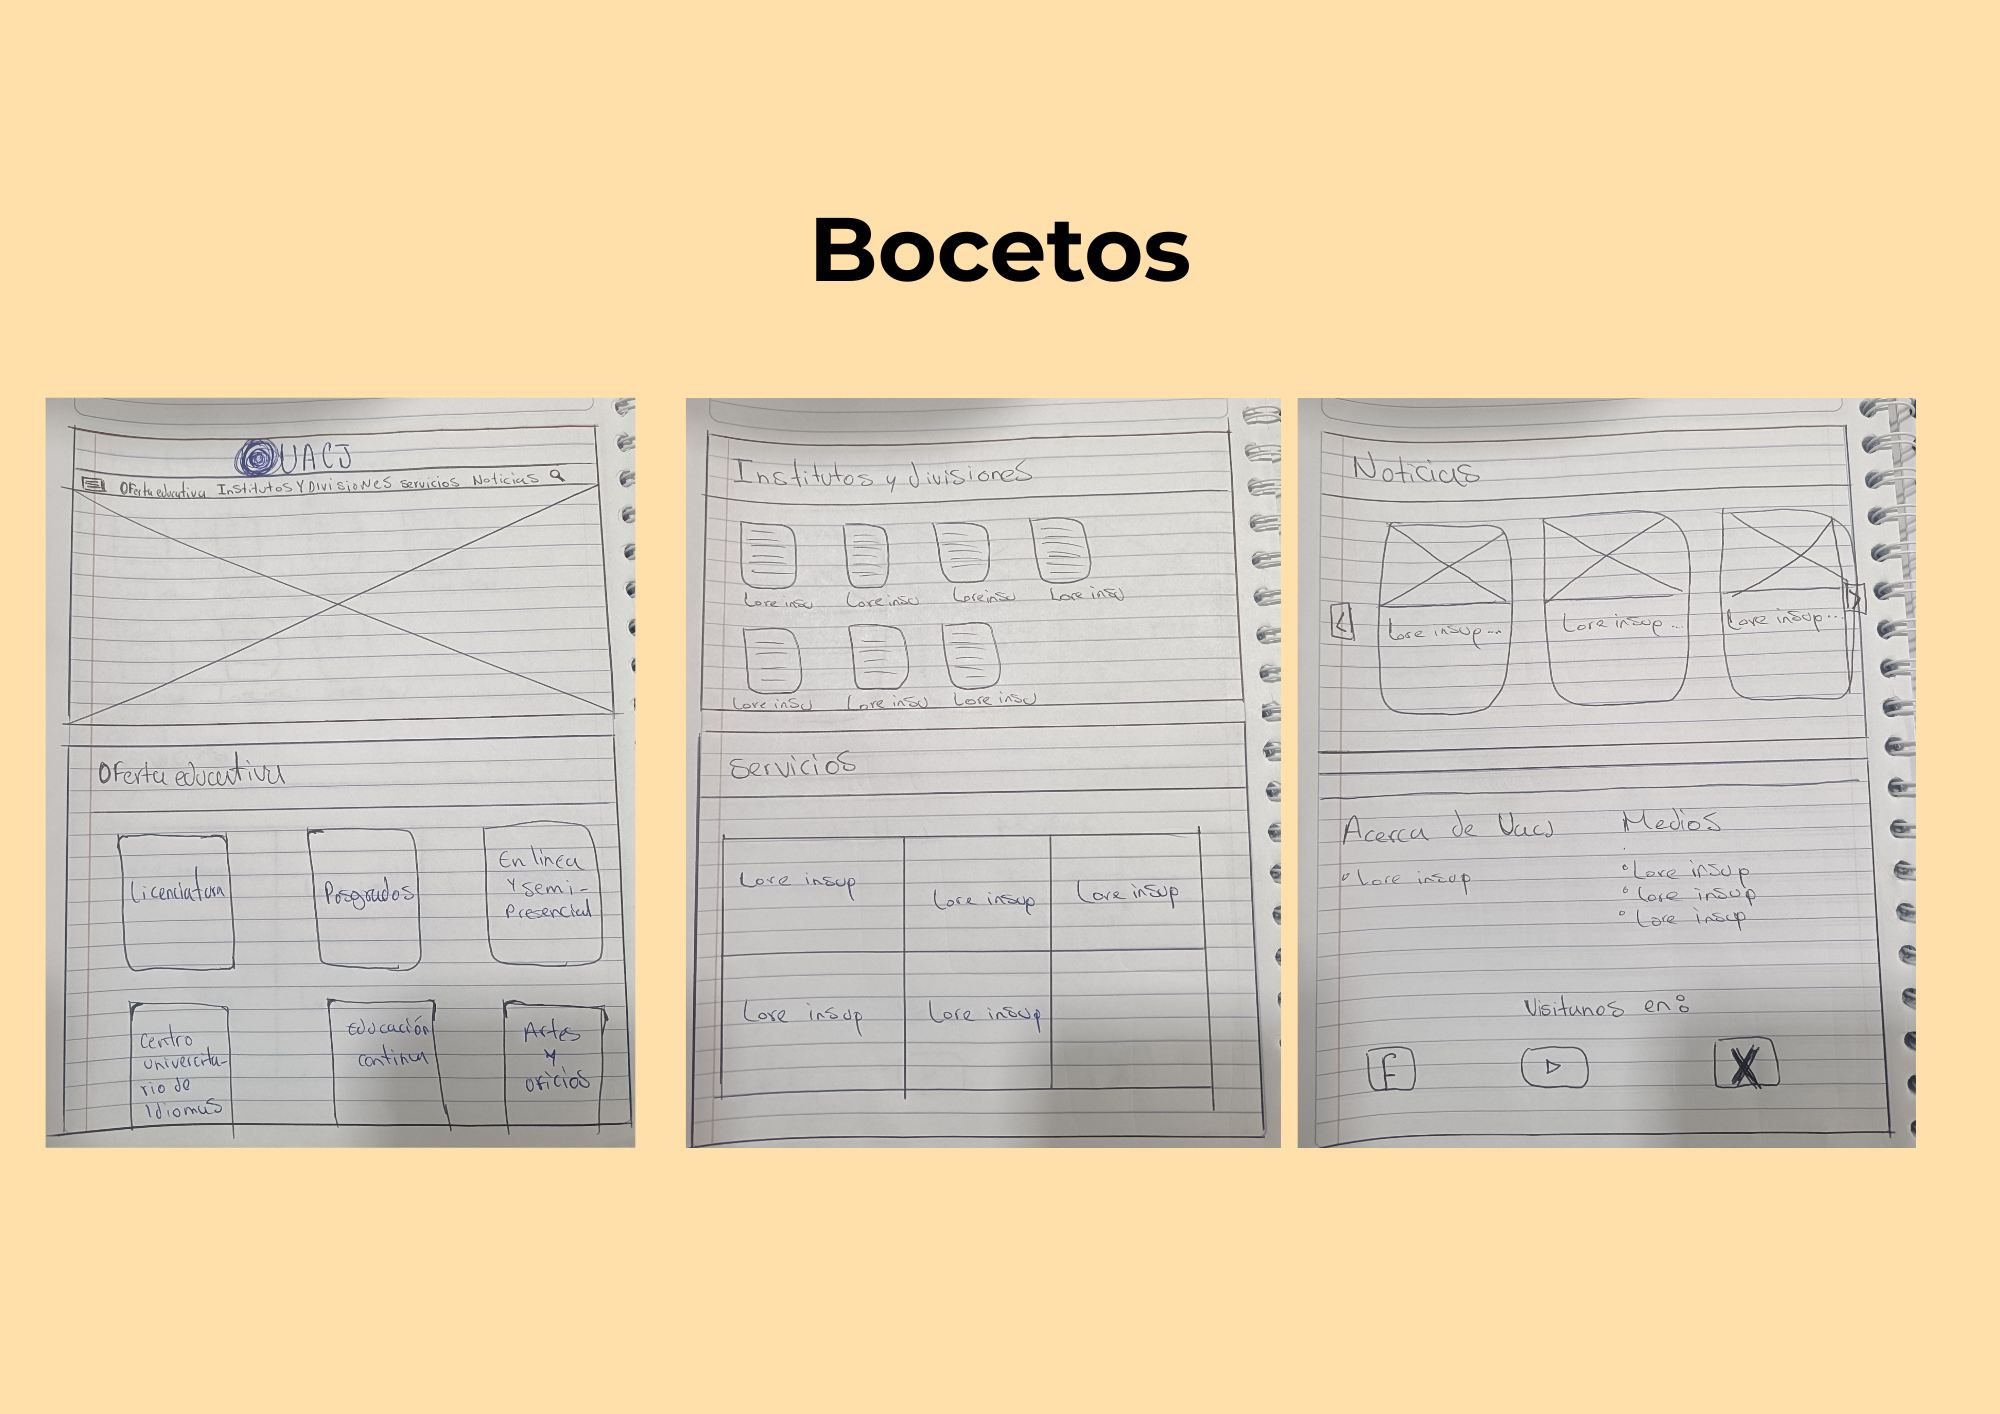 Bocetos
UACJ
Oferta educativa Institutos Y Divisiones servicios Noticias
Oferta educativa
Licenciatura
Posgrados
En línea
Y semi-
Presencial
Centro
univercita-
rio de
Idiomas
Educación
continua
Artes
Y
oficios
Institutos y divisiones
Lore insu
Lore insu
Lore insu
Lore insu
Lore insu
Lore insu
Lore insu
Servicios
Lore insup
Lore insup
Lore insup
Lore insup
Lore insup
Noticias
Lore insup...
Lore insup...
Lore insup...
Acerca de Uacj
° Lore insup
Medios
° Lore insup
° Lore insup
° Lore insup
Visitanos en:
F
X